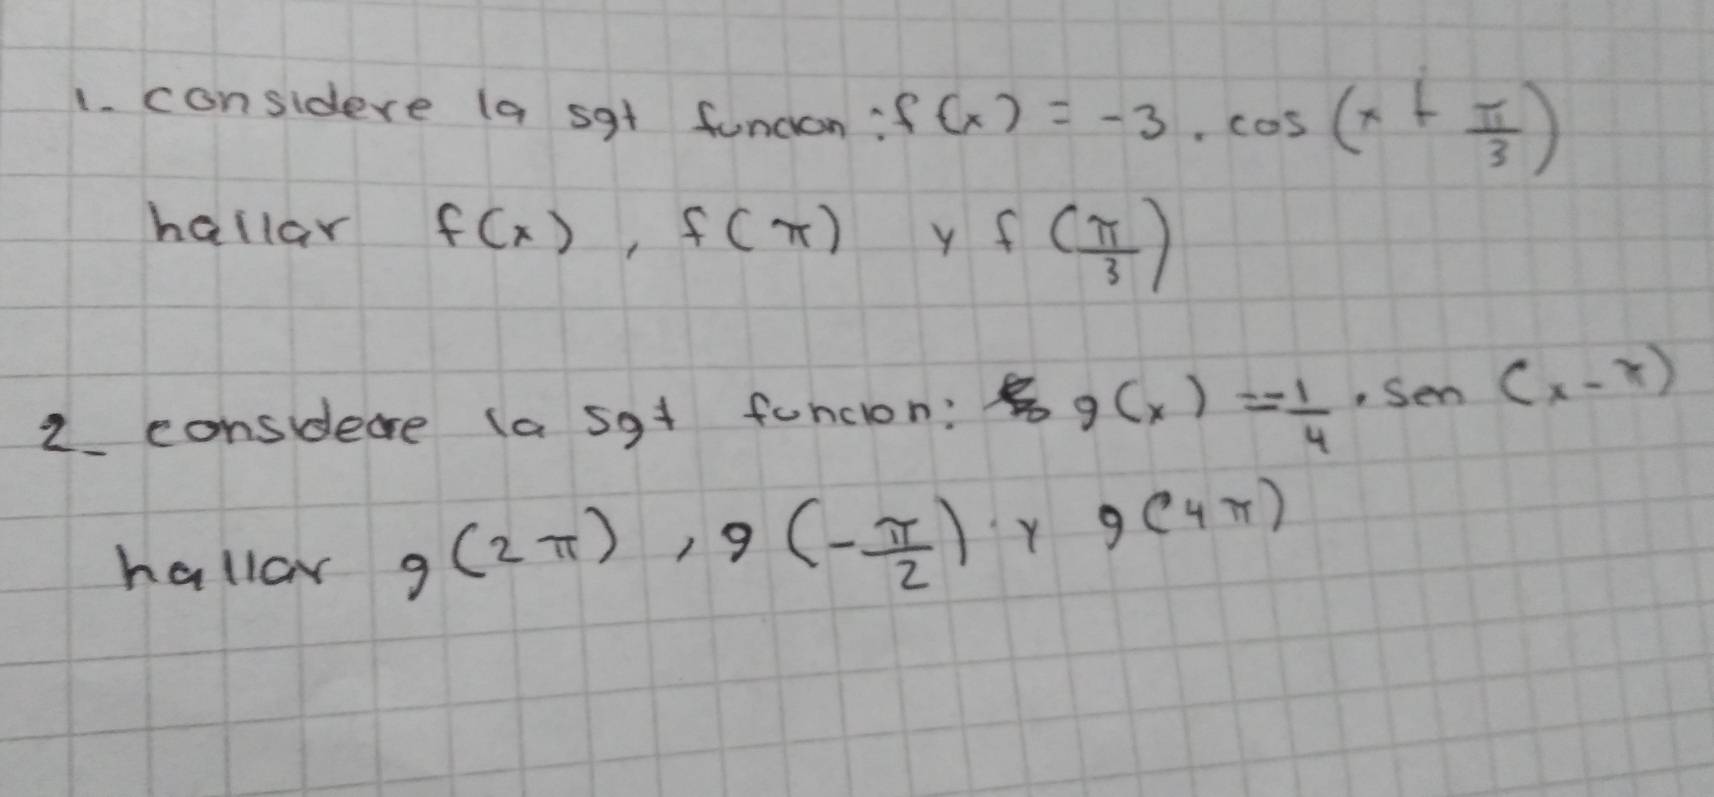 1. considere la sgt funcion: f(x) = -3 . cos (x + π/3)
hallar f(x) , f(π) y f(π/3)
2_ considere la sgt funcion: g(x) = -1/4 . sen (x - π)
hallar g(2π) , g(-π/2) y g(4π)